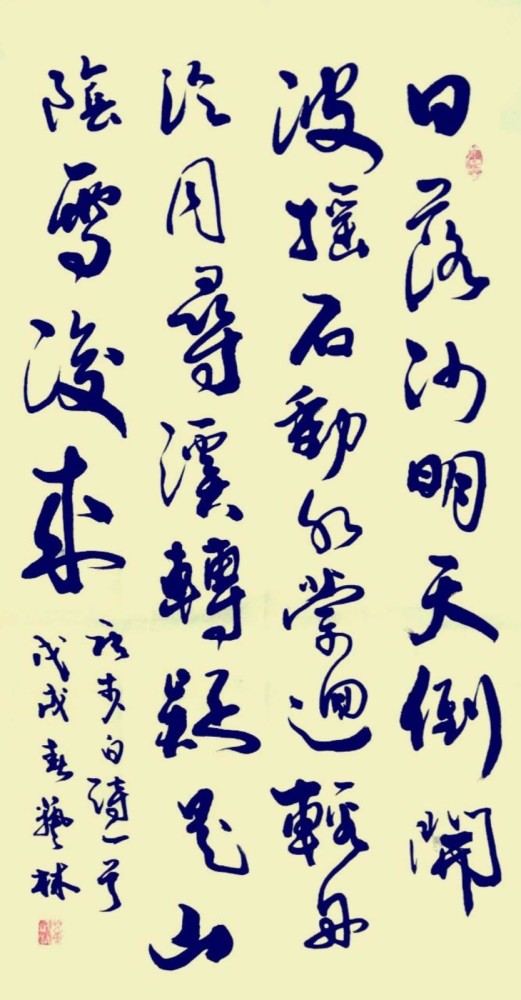 日落沙明天倒開
波搖石動水縈迴輕舟
泛月尋溪轉疑是山
陰雪後來
録李白詩一首
戊戌春藝林